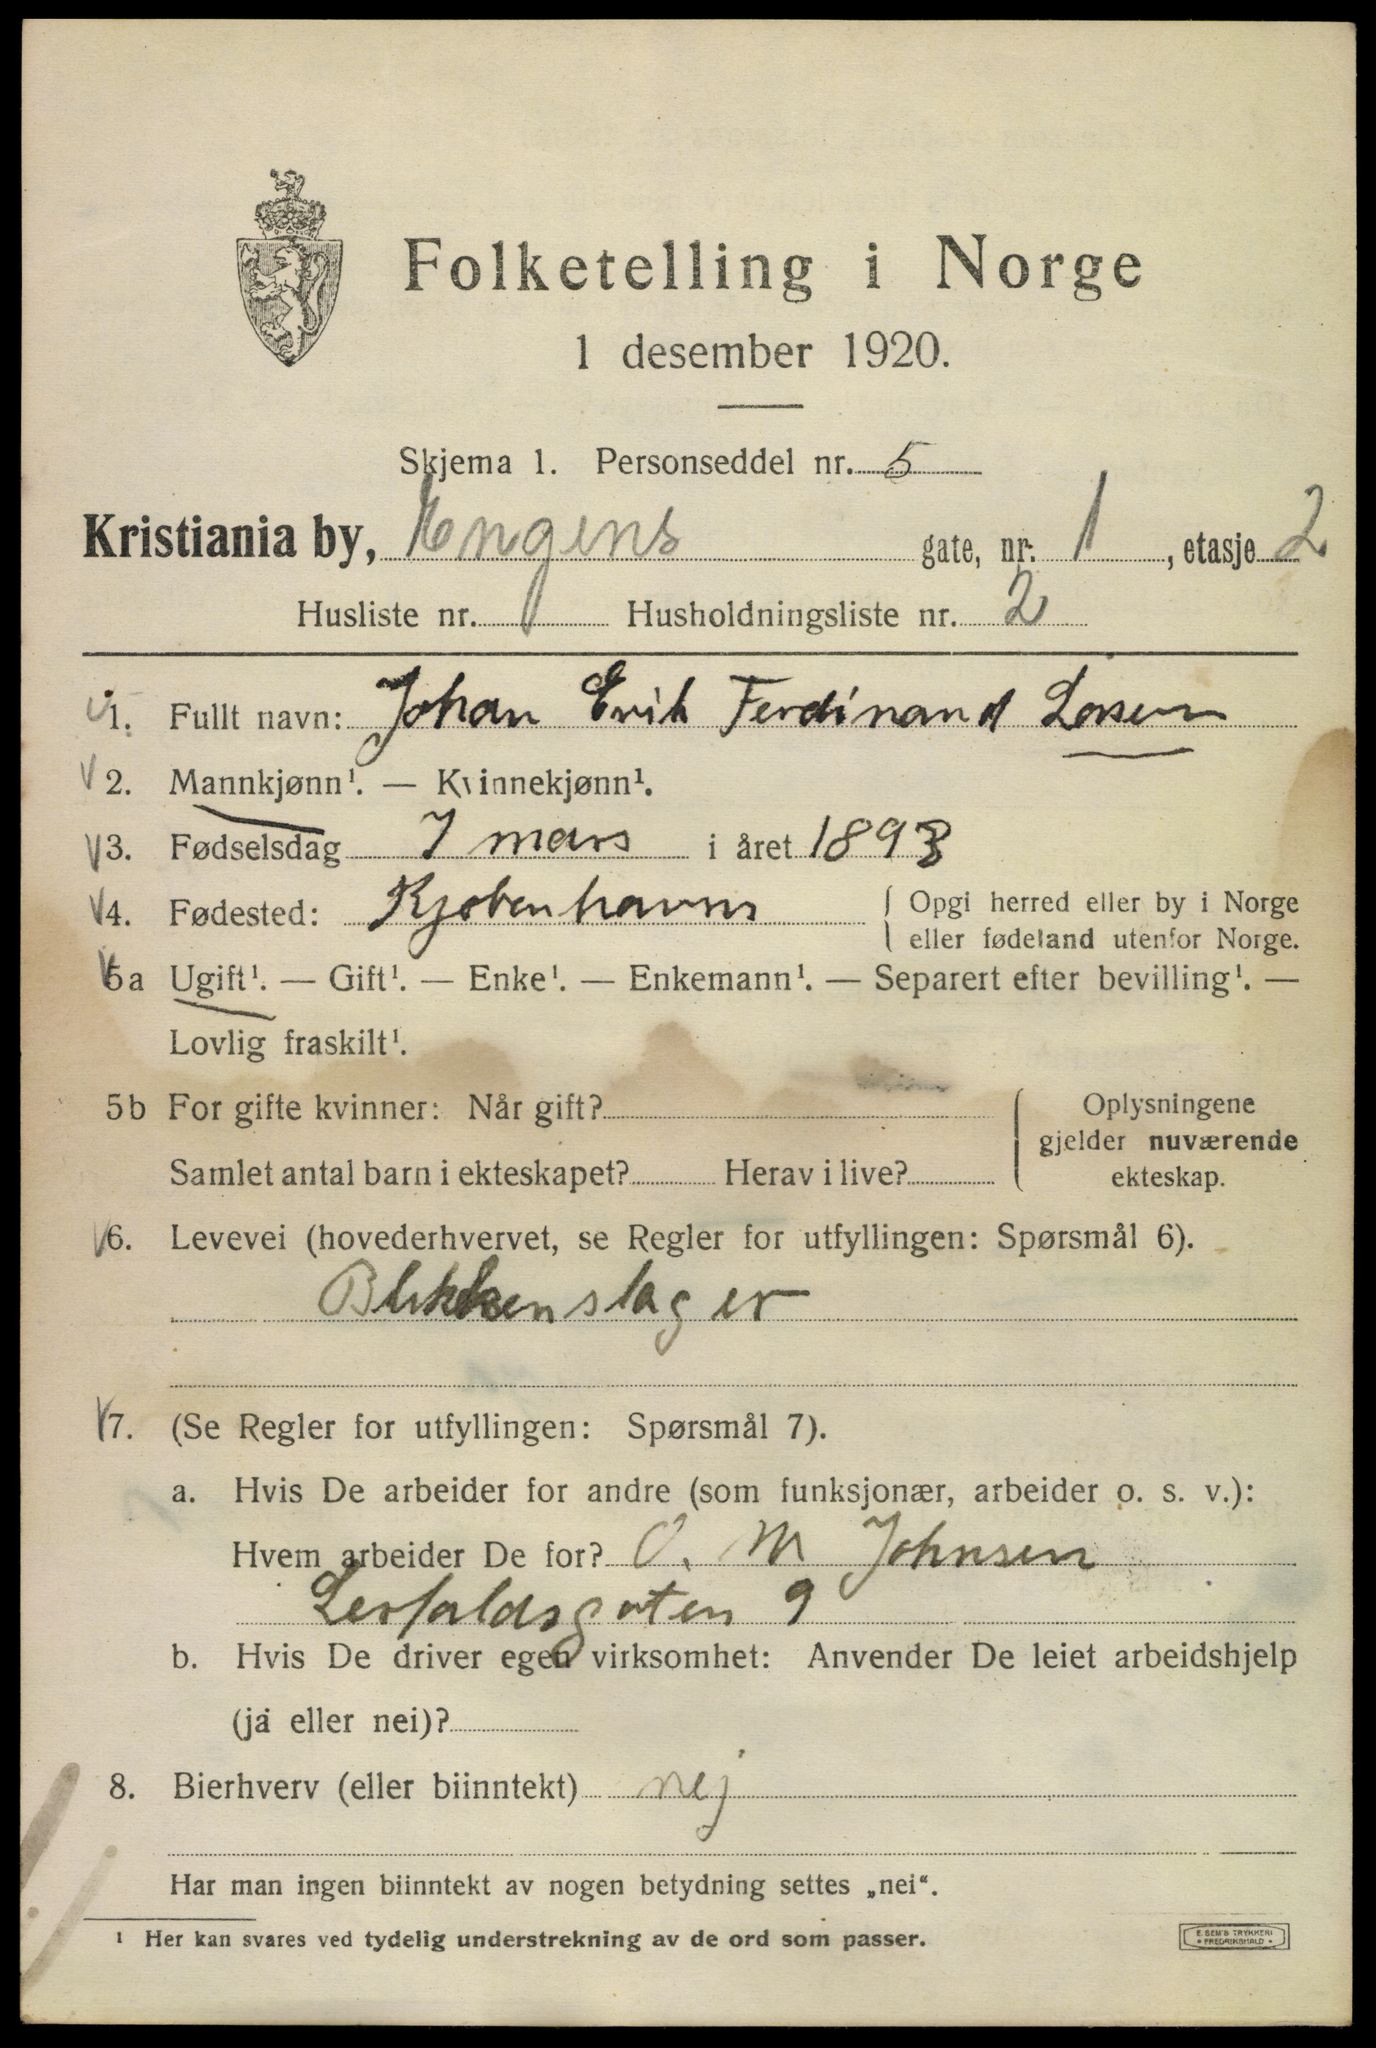 Folketelling i Norge
1 desember 1920.
Skjema 1. Personseddel nr. 5
Kristiania by, Engens gate, nr. 1, etasje 2
Husliste nr. 1 Husholdningsliste nr. 2
1. Fullt navn: Johan Erik Ferdinand Larsen
2. Mannkjønn¹. — Kvinnekjønn¹.
3. Fødselsdag 7 mars i året 1893
4. Fødested: Kjøbenhavn { Opgi herred eller by i Norge
eller fødeland utenfor Norge.
5a Ugift¹. — Gift¹. — Enke¹. — Enkemann¹. — Separert efter bevilling¹. —
Lovlig fraskilt¹.
5b For gifte kvinner: Når gift? { Oplysningene
gjelder nuværende
Samlet antal barn i ekteskapet? Herav i live? ekteskap.
6. Levevei (hovederhvervet, se Regler for utfyllingen: Spørsmål 6).
Blikkenslager
7. (Se Regler for utfyllingen: Spørsmål 7).
a. Hvis De arbeider for andre (som funksjonær, arbeider o. s. v.):
Hvem arbeider De for? O. M Johnsen
Lerfaldsgaten 9
b. Hvis De driver egen virksomhet: Anvender De leiet arbeidshjelp
(ja eller nei)?
8. Bierhverv (eller biinntekt) nej
Har man ingen biinntekt av nogen betydning settes „nei“.
¹ Her kan svares ved tydelig understrekning av de ord som passer.
E. SEM'S TRYKKERI
• FREDRIKSHALD •